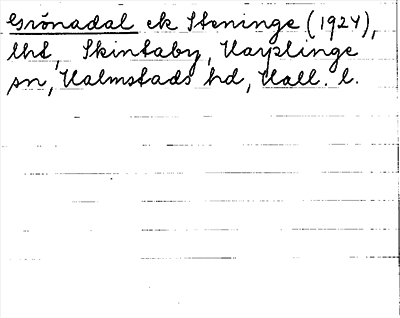 Grönadal ek Steninge (1924),
lht, Skintaby, Harplinge
sn, Halmstads hd, Hall. l.